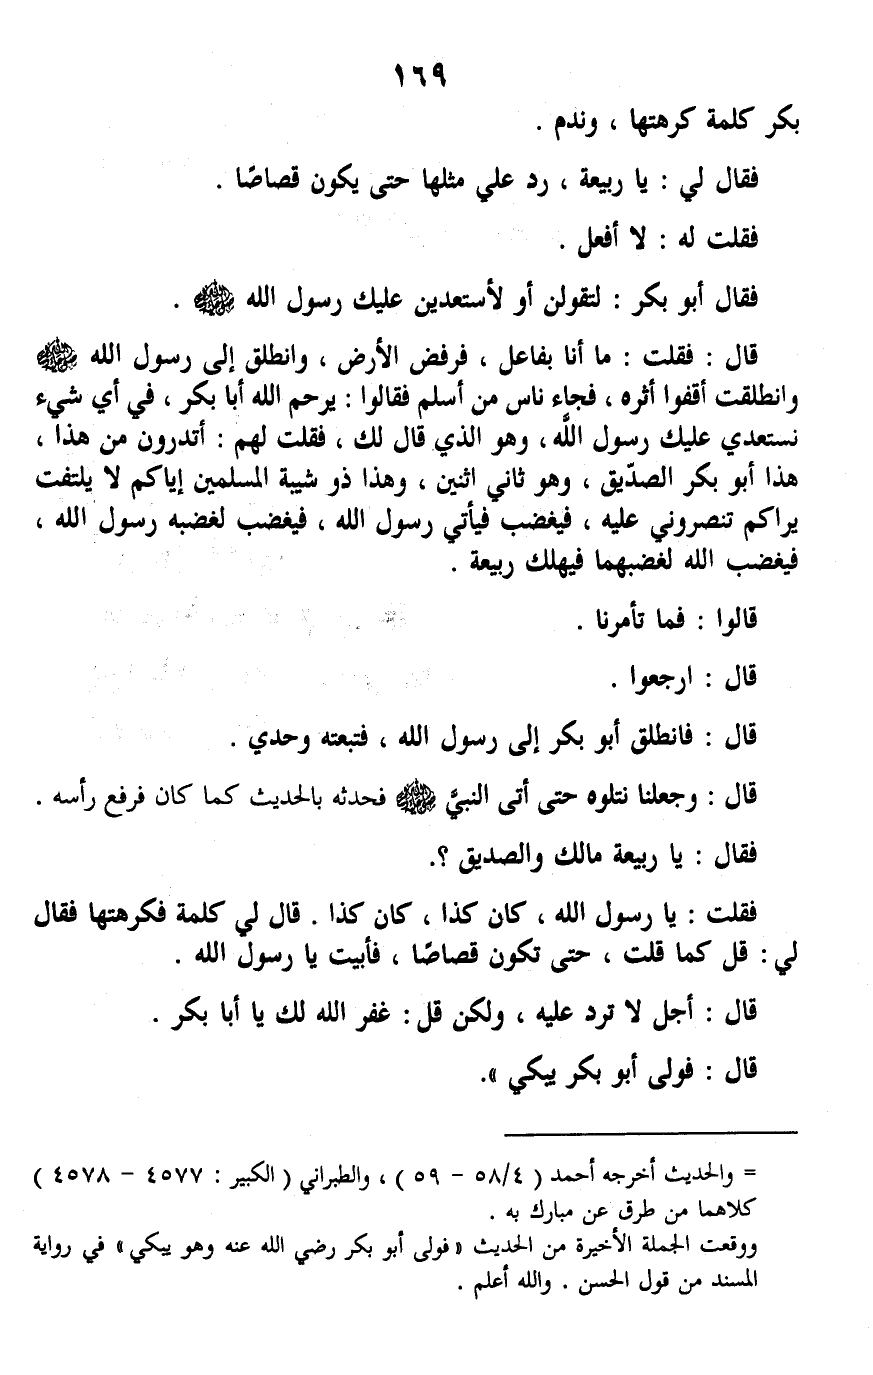 ١٦٩
بكر كلمة كرهتها ، وندم .
فقال لي : يا ربيعة ، رد علي مثلها حتى يكون قصاصًا .
فقلت له : لا أفعل .
فقال أبو بكر : لتقولن أو لأستعدين عليك رسول الله ﷺ .
قال : فقلت : ما أنا بفاعل ، فرفض الأرض ، وانطلق إلى رسول الله ﷺ
وانطلقت أقفوا أثره ، فجاء ناس من أسلم فقالوا : يرحم الله أبا بكر ، في أي شيء
نستعدي عليك رسول اللَّه ، وهو الذي قال لك ، فقلت لهم : أتدرون من هذا ،
هذا أبو بكر الصدّيق ، وهو ثاني اثنين ، وهذا ذو شيبة المسلمين إياكم لا يلتفت
يراكم تنصروني عليه ، فيغضب فيأتي رسول الله ، فيغضب لغضبه رسول الله ،
فيغضب الله لغضبهما فيهلك ربيعة .
قالوا : فما تأمرنا .
قال : ارجعوا .
قال : فانطلق أبو بكر إلى رسول الله ، فتبعته وحدي .
قال : وجعلنا نتلوه حتى أتى النبيَّ ﷺ فحدثه بالحديث كما كان فرفع رأسه .
فقال : يا ربيعة مالك والصديق ؟.
فقلت : يا رسول الله ، كان كذا ، كان كذا . قال لي كلمة فكرهتها فقال
لي : قل كما قلت ، حتى تكون قصاصًا ، فأبيت يا رسول الله .
قال : أجل لا ترد عليه ، ولكن قل : غفر الله لك يا أبا بكر .
قال : فولى أبو بكر يبكي ».
= والحديث أخرجه أحمد ( ٥٨/٤ – ٥٩ ) ، والطبراني ( الكبير : ٤٥٧٧ – ٤٥٧٨ )
كلاهما من طرق عن مبارك به .
ووقعت الجملة الأخيرة من الحديث « فولى أبو بكر رضي الله عنه وهو يبكي » في رواية
المسند من قول الحسن . والله أعلم .